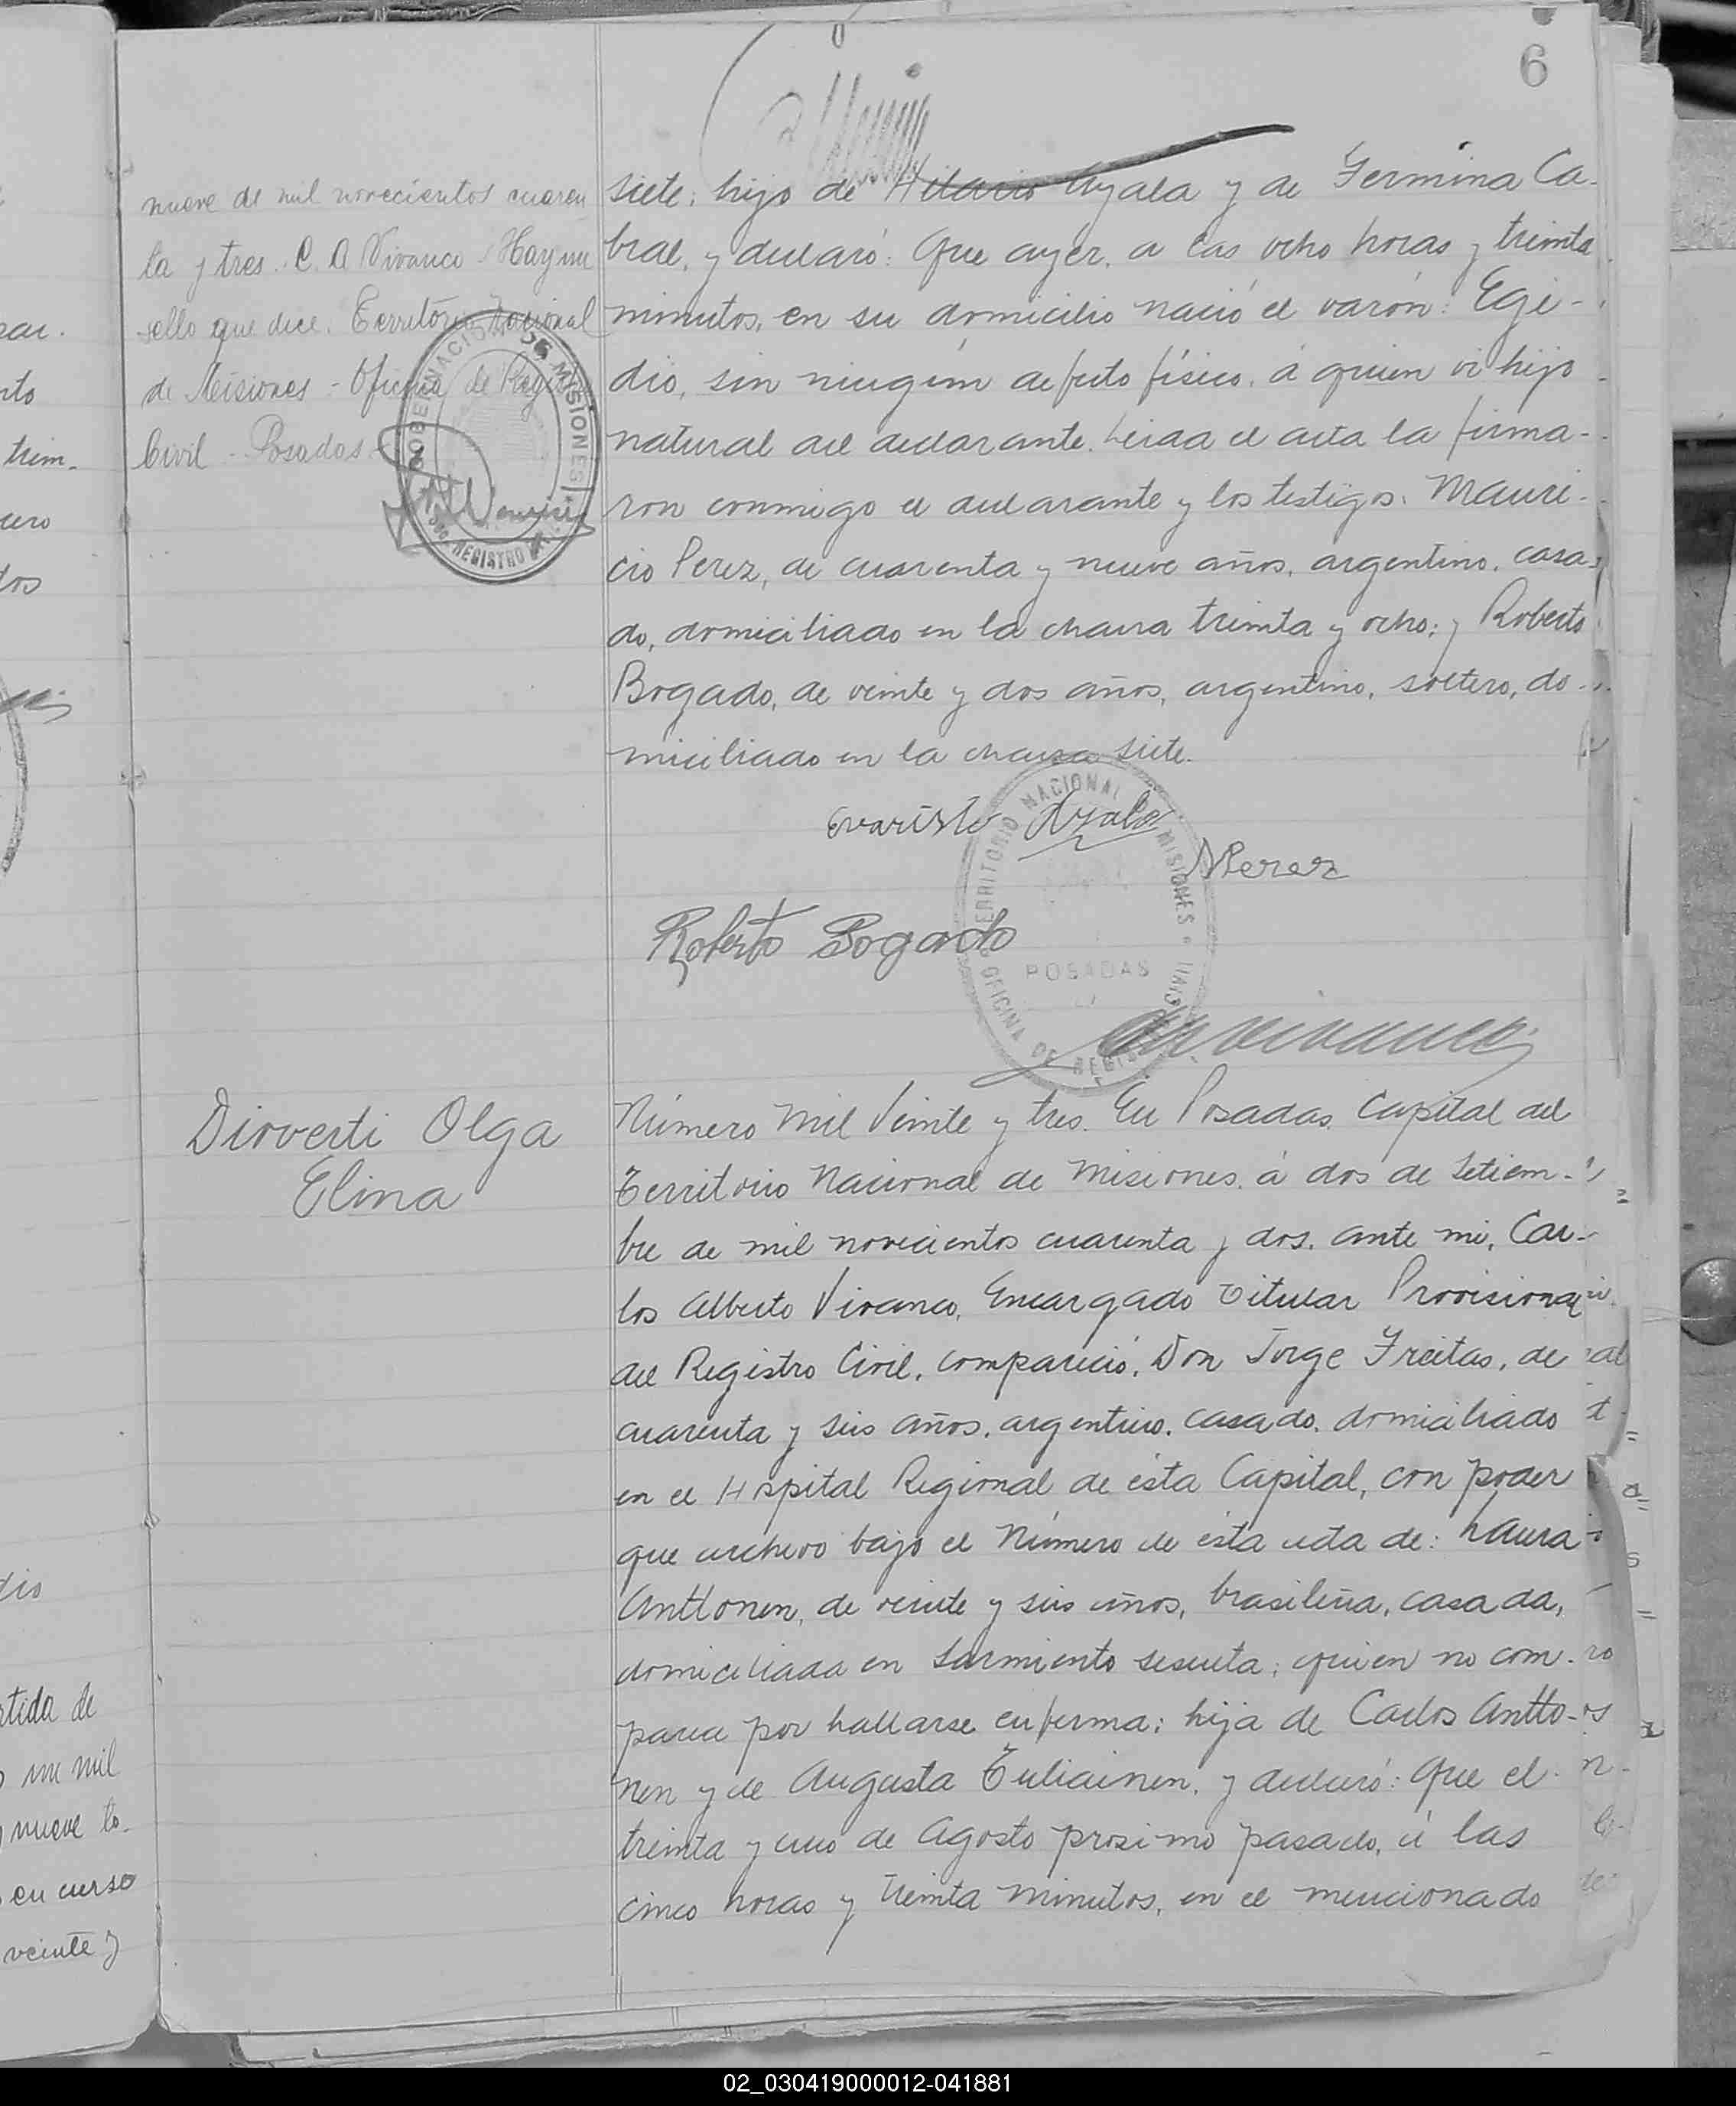 6
nueve de mil novecientos cuaren
ta y tres. C. A Vivanco. Hay un
sello que dice. Territorio Nacional
de Misiones - Oficina de Registro
Civil - Posadas -
GOBERNACION DE MISIONES
REGISTRO
siete; hijo de Hilario Ayala y de Fermina Ca-
bral, y declaró: Que ayer, a las ocho horas y treinta
minutos, en su domicilio nació el varón: Egi-
dio, sin ningún defecto físico, á quien vi hijo
natural del declarante. Leida el acta la firma-
ron conmigo el declarante y los testigos: Mauri-
cio Perez, de cuarenta y nueve años, argentino, casa-
do, domiciliado en la chacra treinta y ocho; y Roberto
Bogado, de veinte y dos años, argentino, soltero, do-
miciliado en la chacra siete.
Evaristo Ayala
MPerez
Roberto Bogado
TERRITORIO NACIONAL MISIONES
POSADAS
OFICINA DE REGISTRO CIVIL
CAVivanco
Dirverti Olga
Elina
Número Mil Veinte y tres. En Posadas, Capital del
Territorio Nacional de Misiones, á dos de Setiem-
bre de mil novecientos cuarenta y dos, ante mi, Car-
los Alberto Vivanco, Encargado Titular Provisional
del Registro Civil, compareció, Don Jorge Freitas, de
cuarenta y seis años, argentino, casado, domiciliado
en el Hospital Regional de ésta Capital, con poder
que archivo bajo el Número de ésta acta de: Laura
Anttonen, de veinte y seis años, brasileña, casada,
domiciliada en Sarmiento sesenta; quien no com-
parece por hallarse enferma; hija de Carlos Antto-
nen y de Augusta Tuliainen, y declaró: Que el
treinta y uno de Agosto prosimo pasado, á las
cinco horas y treinta minutos, en el mencionado
trim-
dos
dio
rtida de
mil
nueve to-
en curso
veinte y
02_030419000012-041881